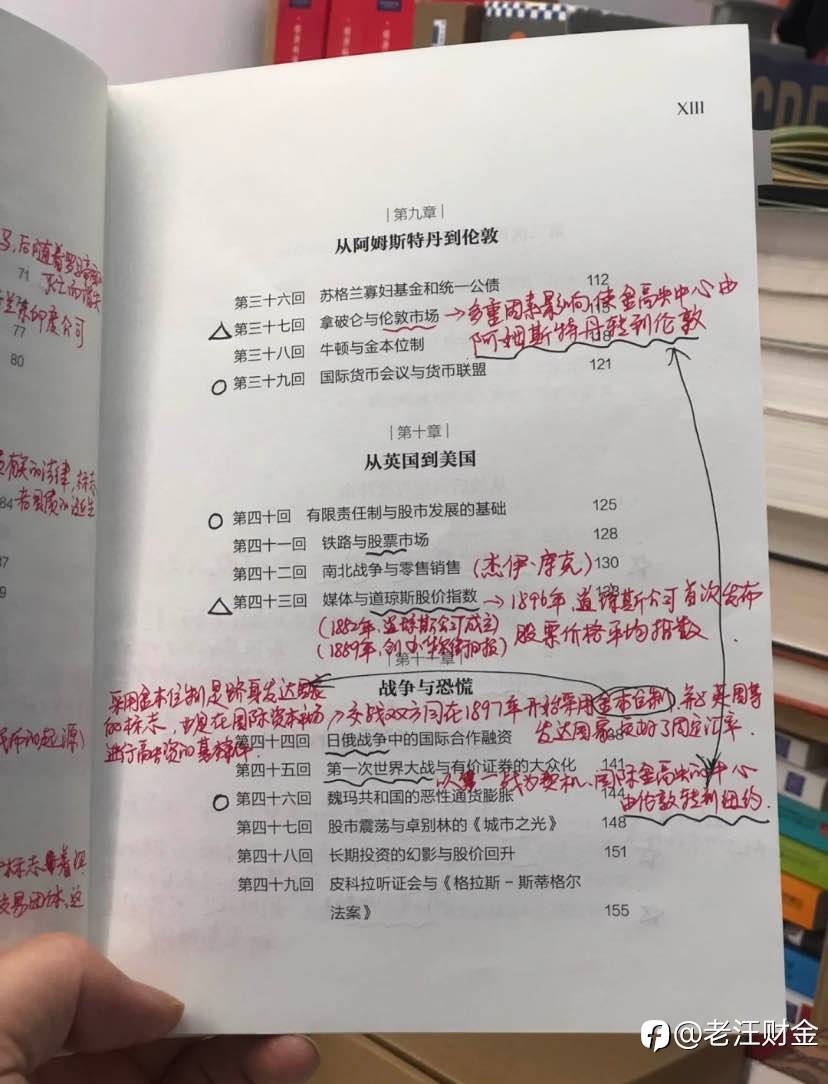 XIII
|第九章|
从阿姆斯特丹到伦敦
第三十六回 苏格兰寡妇基金和统一公债 112
第三十七回 拿破仑与伦敦市场
→多重因素影响,使金融中心由
阿姆斯特丹转到伦敦
第三十八回 牛顿与金本位制 118
第三十九回 国际货币会议与货币联盟 121
|第十章|
从英国到美国
第四十回 有限责任制与股市发展的基础 125
第四十一回 铁路与股票市场 128
第四十二回 南北战争与零售销售 (杰伊·库克) 130
第四十三回 媒体与道琼斯股价指数
→1896年,道琼斯公司首次发布
股票价格平均指数
(1882年,道琼斯公司成立)
(1889年,创办华尔街日报)
|第十一章|
战争与恐慌
采用金本位制是跻身发达国家
的标志,也是在国际资本市场
进行融资的基本条件
交战双方同在1897年开始采用金本位制,并与英国等
发达国家
了固定汇率.
第四十四回 日俄战争中的国际合作融资 138
第四十五回 第一次世界大战与有价证券的大众化 141
以第一战为契机,国际金融的中心
由伦敦转到纽约.
第四十六回 魏玛共和国的恶性通货膨胀 144
第四十七回 股市震荡与卓别林的《城市之光》 148
第四十八回 长期投资的幻影与股价回升 151
第四十九回 皮科拉听证会与《格拉斯-斯蒂格尔
法案》 155
71
77
80
84
@老汪财金